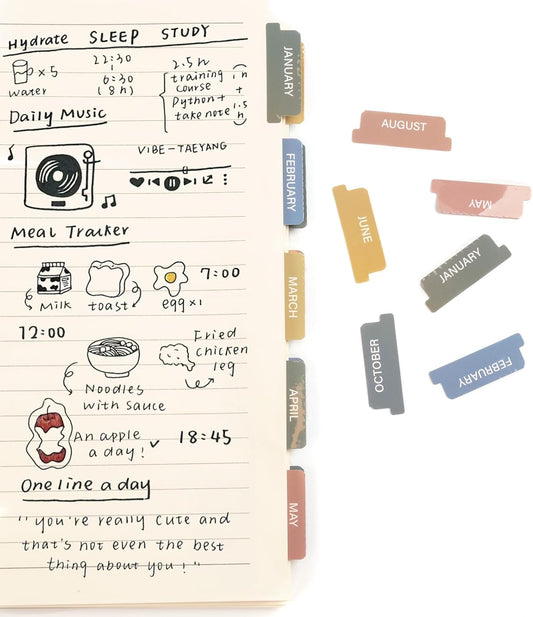 Hydrate SLEEP STUDY
x5
water
22:30
6:30
(8h)
2.5h
training 1h
course +
Python+ 1.5
take note h
Daily Music
VIBE-TAEYANG
Meal Tracker
Milk toast egg x1 7:00
12:00
Noodles
with sauce
Fried
chicken
leg
An apple
a day! 18:45
One line a day
"you're really cute and
that's not even the best
thing about you!"
JANUARY
FEBRUARY
MARCH
APRIL
MAY
AUGUST
MAY
JUNE
JANUARY
OCTOBER
FEBRUARY